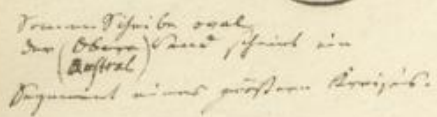 Sonnen Scheibe oval
der (Obere Austral) Rand scheint ein
Segment eines größern Kreises.